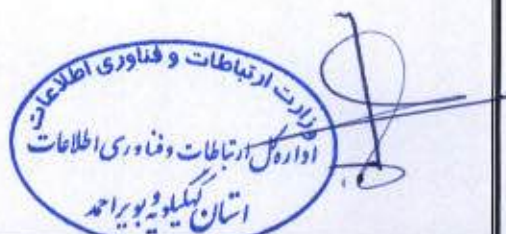 وزارت ارتباطات و فناوری اطلاعات
اداره کل ارتباطات و فناوری اطلاعات
استان کهگیلویه و بویراحمد